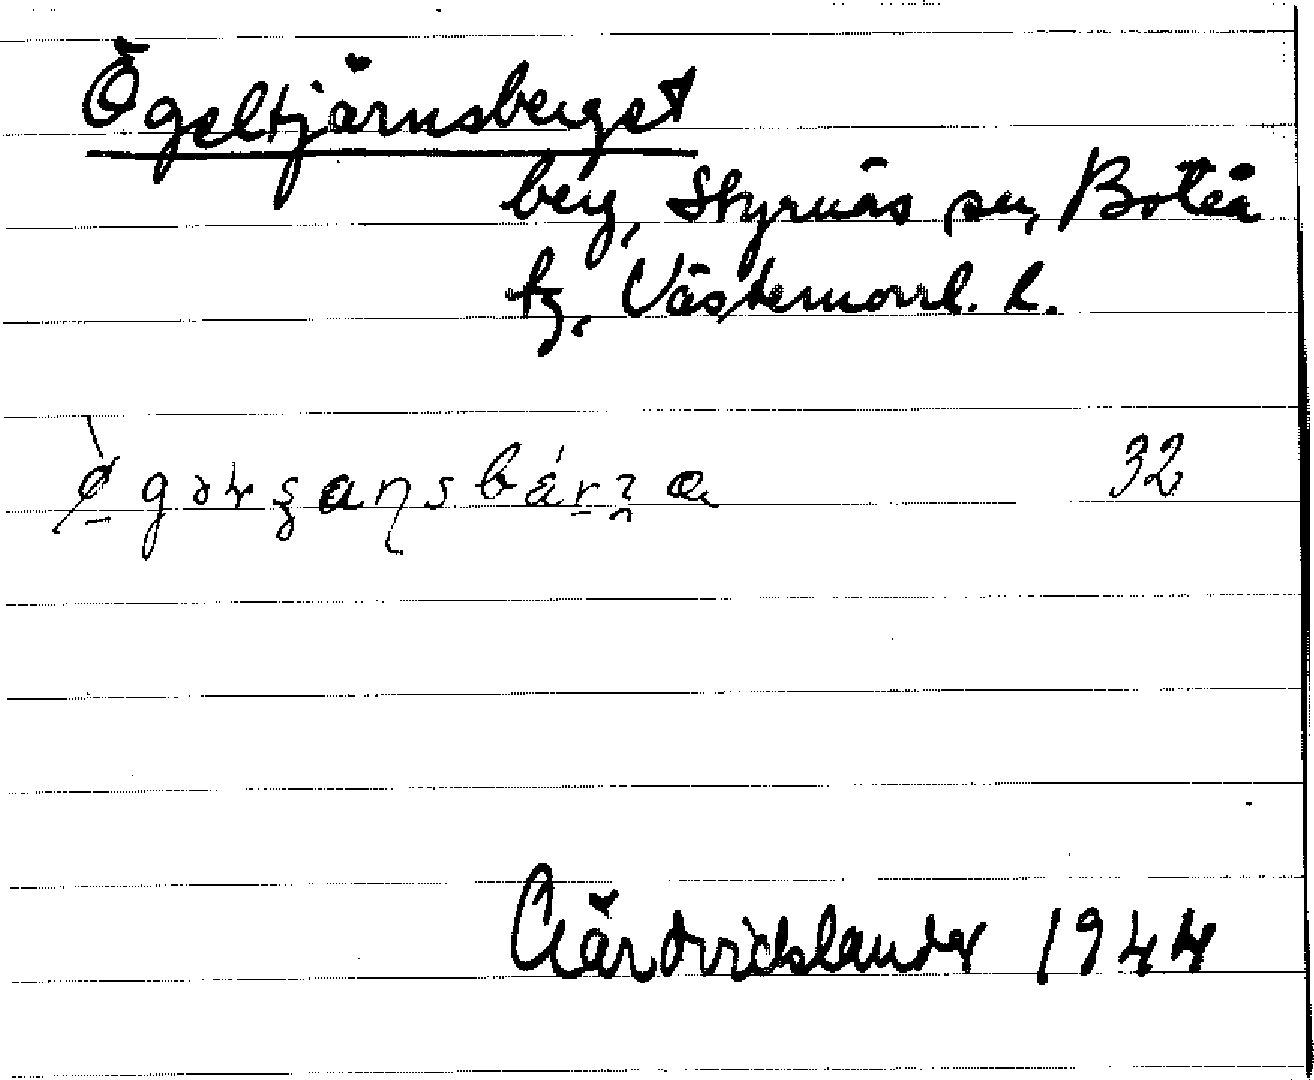 Ögeltjärnsberget
berg, Styrnäs sn, Boteå
tg, Västernorrl. l.
32
1944